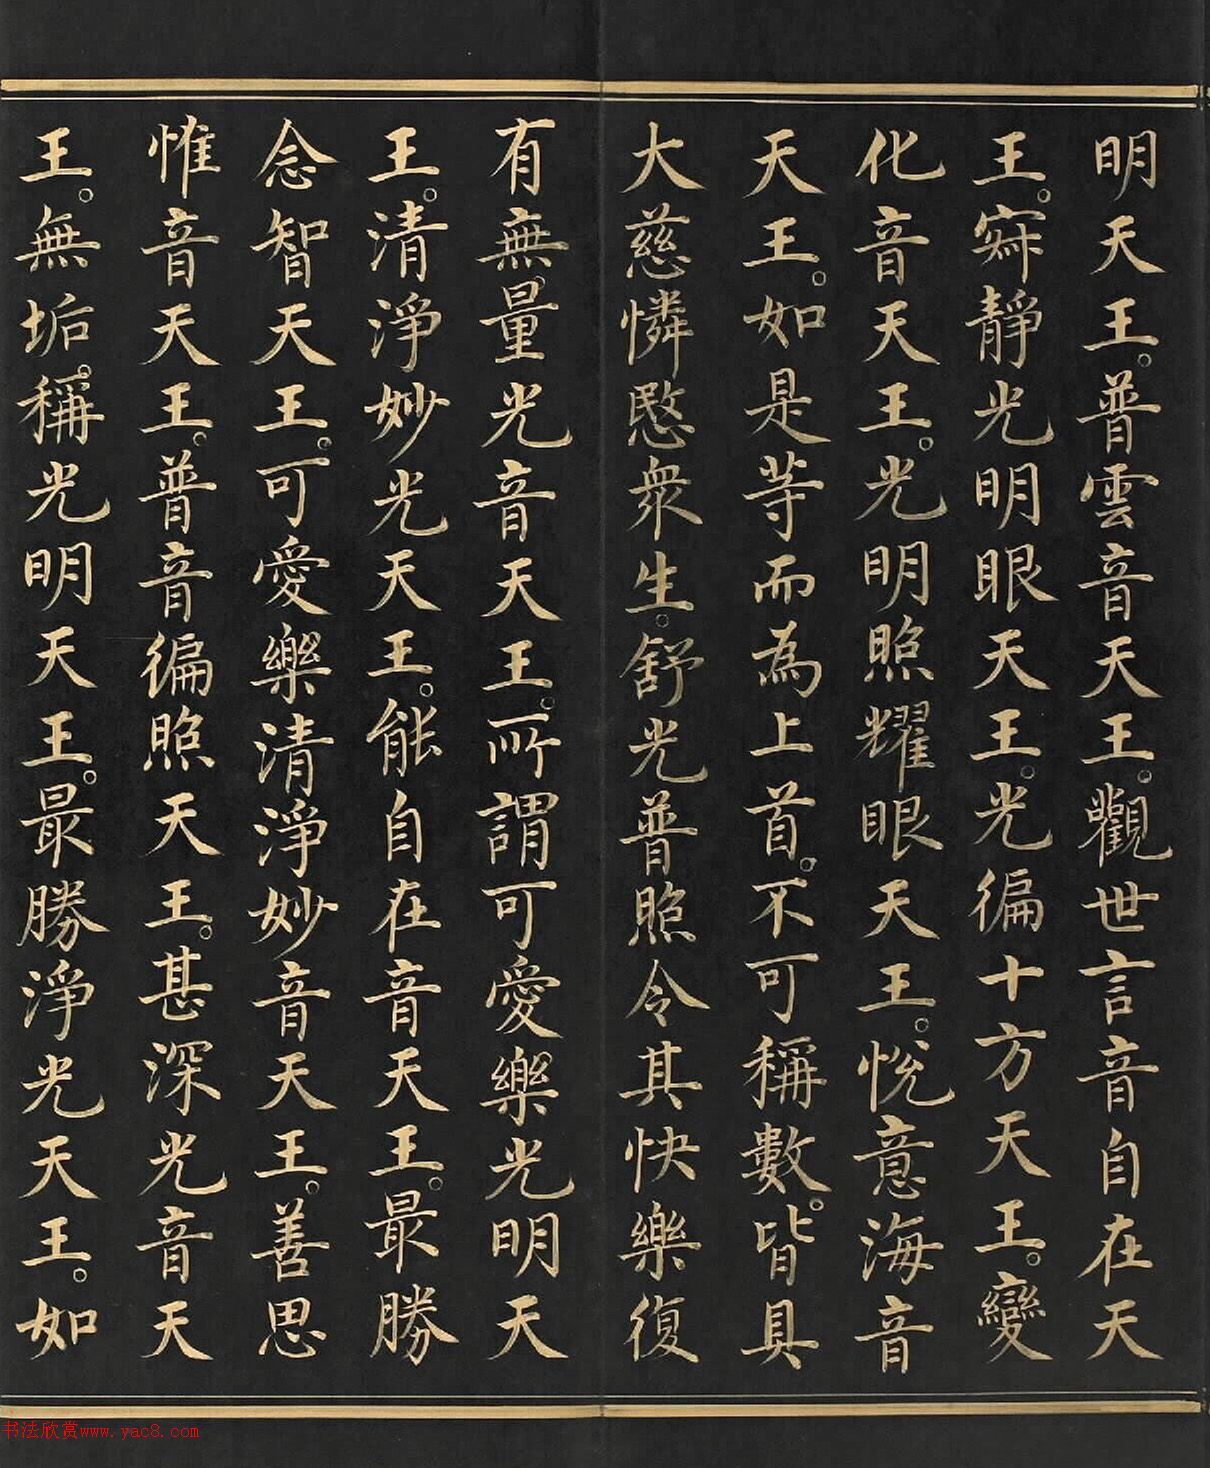 明天王。普雲音天王。觀世言音自在天
王。寂靜光明眼天王。光徧十方天王。變
化音天王。光明照耀眼天王。悅意海音
天王。如是等而為上首。不可稱數。皆具
大慈憐愍眾生。舒光普照令其快樂復
有無量光音天王。所謂可愛樂光明天
王。清淨妙光天王。能自在音天王。最勝
念智天王。可愛樂清淨妙音天王。善思
惟音天王。普音徧照天王。甚深光音天
王。無垢。稱光明天王。最勝淨光天王。如
书法欣赏www.yac8.com